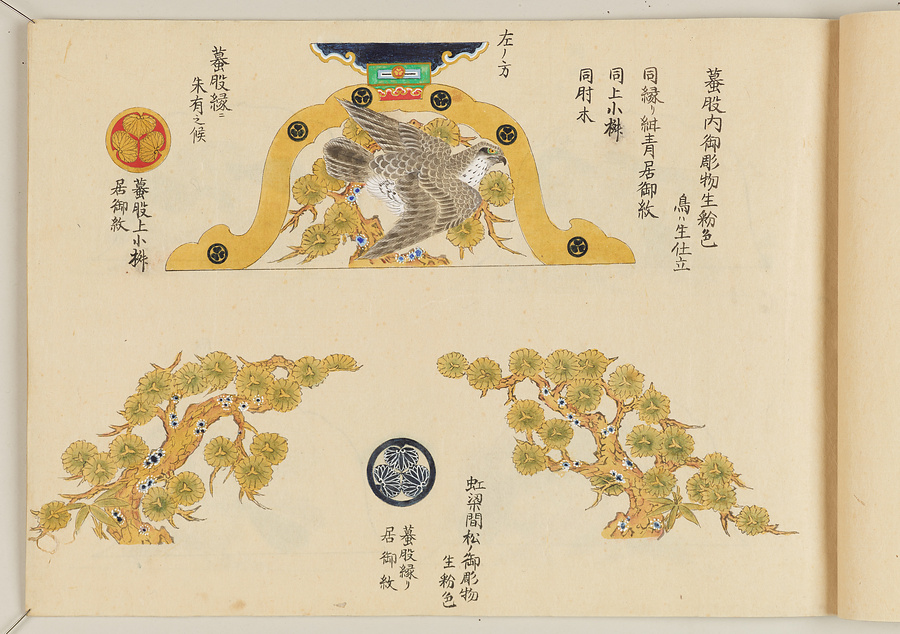 蟇股内御彫物生粉色
鳥ハ生仕立
同縁り紺青居御紋
同上小桝
同肘木
左ノ方
蟇股縁ニ
朱有之候
蟇股上小桝
居御紋
虹梁間松ノ御彫物
生粉色
蟇股縁り
居御紋